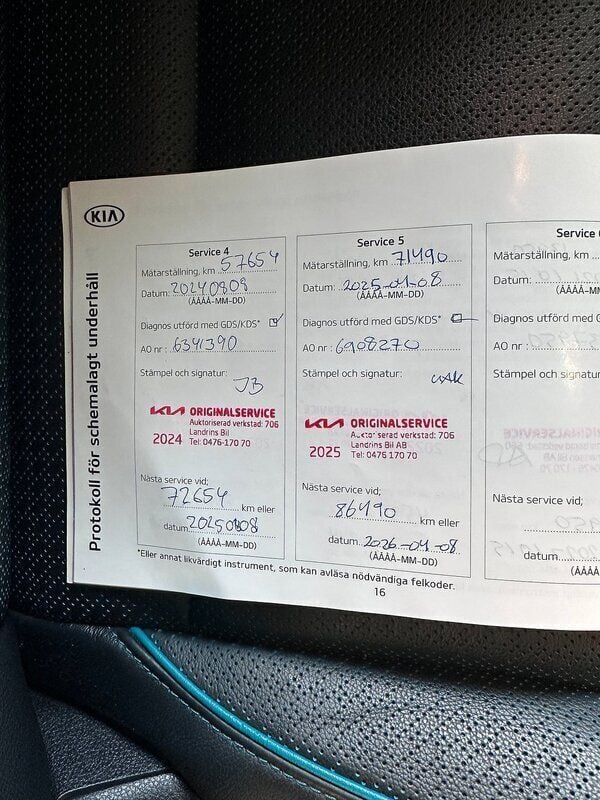 KIA
Protokoll för schemalagt underhåll
Service 4
Mätarställning, km 57654
Datum: 20240809
(ÅÅÅÅ-MM-DD)
Diagnos utförd med GDS/KDS*
AO nr: 6341390
Stämpel och signatur:
JB
KIA ORIGINALSERVICE
Auktoriserad verkstad: 706
Landrins Bil
2024 Tel: 0476-170 70
Nästa service vid;
72654 km eller
datum 20250808
(ÅÅÅÅ-MM-DD)
Service 5
Mätarställning, km 71490
Datum: 2025-01-08
(ÅÅÅÅ-MM-DD)
Diagnos utförd med GDS/KDS*
AO nr: 6908270
Stämpel och signatur:
KIA ORIGINALSERVICE
Auktoriserad verkstad: 706
Landrins Bil AB
2025 Tel: 0476 170 70
Nästa service vid;
86490 km eller
datum 2026-01-08
(ÅÅÅÅ-MM-DD)
Service
Mätarställning,
Datum:
Diagnos utförd med
AO nr:
Stämpel och
Nästa service vid;
datum
*Eller annat likvärdigt instrument, som kan avläsa nödvändiga felkoder.
16